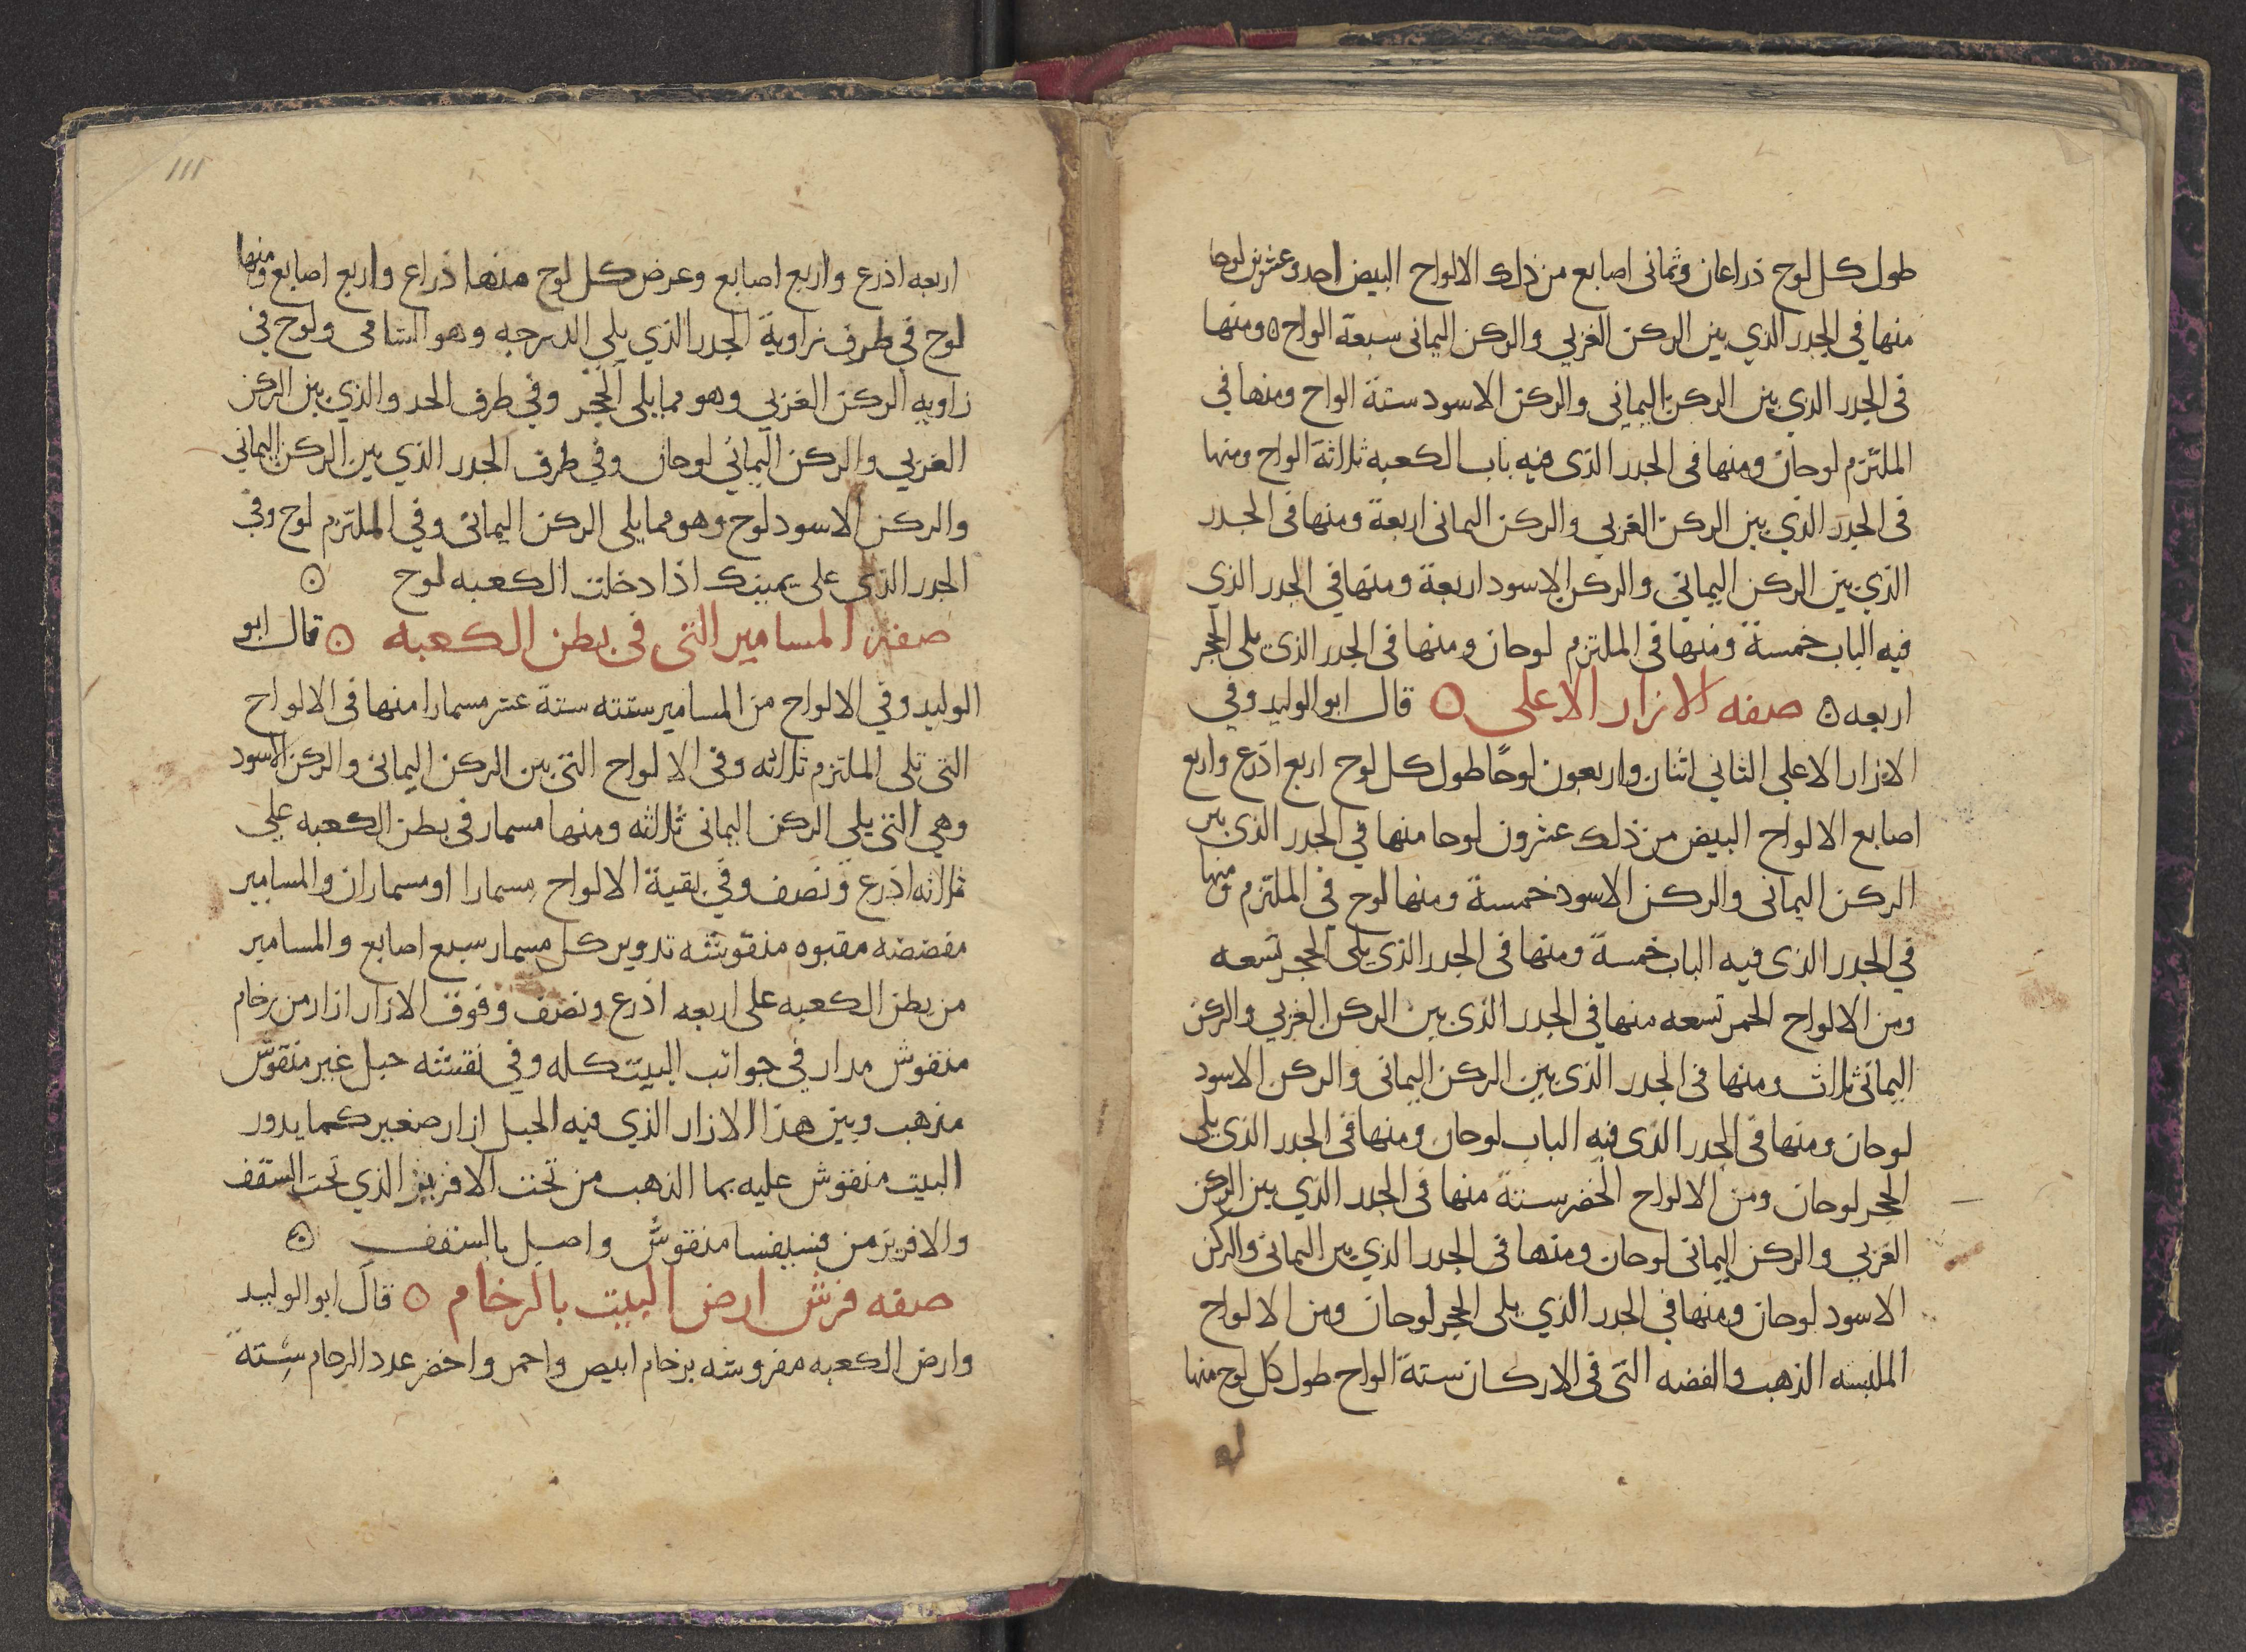 طول كل لوح ذراعان وثمانى اصابع من ذلك الالواح البيض احد وعشرين لوحا
منها في الجدر الذي بين الركن الغربي والركن اليمانى سبعة الواح ومنها
فى الجدر الذي بين الركن اليماني والركن الاسود ستة الواح ومنها في
الملتزم لوحان ومنها فى الجدر الذى فيه باب الكعبه ثلاثة الواح ومنها
فى الجدر الذي بين الركن الغربي والركن اليمانى اربعة ومنها فى الجدر
الذي بين الركن اليماني والركن الاسود اربعة ومنها في الجدر الذي
فيه الباب خمسة ومنها في الملتزم لوحان ومنها فى الجدر الذى يلى الحجر
اربعه صفه الازار الاعلى قال ابو الوليد وفي
الازار الاعلي الثاني اثنان واربعون لوحًا طول كل لوح اربع اذرع واربع
اصابع الالواح البيض من ذلك عشرون لوحا منها في الجدر الذى بين
الركن اليمانى والركن الاسود خمسة ومنها لوح في الملتزم ومنها
في الجدر الذى فيه الباب خمسة ومنها فى الجدر الذى يلى الحجر تسعه
ومن الالواح الحمر تسعه منها في الجدر الذى بين الركن الغربي والركن
اليمانى ثلاث ومنها فى الجدر الذى بين الركن اليمانى والركن الاسود
لوحان ومنها فى الجدر الذى فيه الباب لوحان ومنها فى الجدر الذى يلى
الحجر لوحان ومن الالواح الخضر ستة منها فى الجدر الذي بين الركن
الغربي والركن اليمانى لوحان ومنها فى الجدر الذي بين اليمانى والركن
الاسود لوحان ومنها في الجدر الذي يلى الحجر لوحان ومن الالواح
الملبسه الذهب والفضه التى فى الاركان ستة الواح طول كل لوح منها
111
اربعه اذرع واربع اصابع وعرض كل لوح منها ذراع واربع اصابع ومنها
لوح في طرف زاوية الجدر الذي يلي الدرجه وهو الشامى ولوح فى
زاويه الركن الغربي وهو مما يلى الحجر وفي طرف الحد والذي بين الركن
الغربي والركن اليماني لوحان وفي طرف الجدر الذي بين الركن اليماني
والركن الاسود لوح وهو مما يلى الركن اليمانى وفي الملتزم لوح وفى
الجدر الذى على يمينك اذا دخلت الكعبه لوح
صفة المسامير التى فى بطن الكعبه قال ابو
الوليد وفي الالواح من المسامير ستته ستة عشر مسمارا منها فى الالواح
التى تلى الملتزم ثلاثه وفى الالواح التى بين الركن اليمانى والركن الاسود
وهي التى يلى الركن اليمانى ثلاثه ومنها مسمار فى بطن الكعبه علي
ثلاثه اذرع ونصف وفي بقية الالواح مسمارا او مسماران والمسامير
مفضضه مقبوه منقوشه تدوير كل مسمار سبع اصابع والمسامير
من بطن الكعبه على اربعه اذرع ونصف وفوق الازار ازار من رخام
منقوش مدار في جوانب البيت كله وفي نقشه حبل غير منقوش
مذهب وبين هذا الازار الذي فيه الحبل ازار صغير كما يدور
البيت منقوش عليه بما الذهب من تحت الافريز الذي تحت السقف
والافريز من فسيفسا منقوش واصيل بالسقف
صفه فرش ارض البيت بالرخام قال ابو الوليد
وارض الكعبه مفروشه برخام ابيض واحمر واخضر عدد الرخام ستة